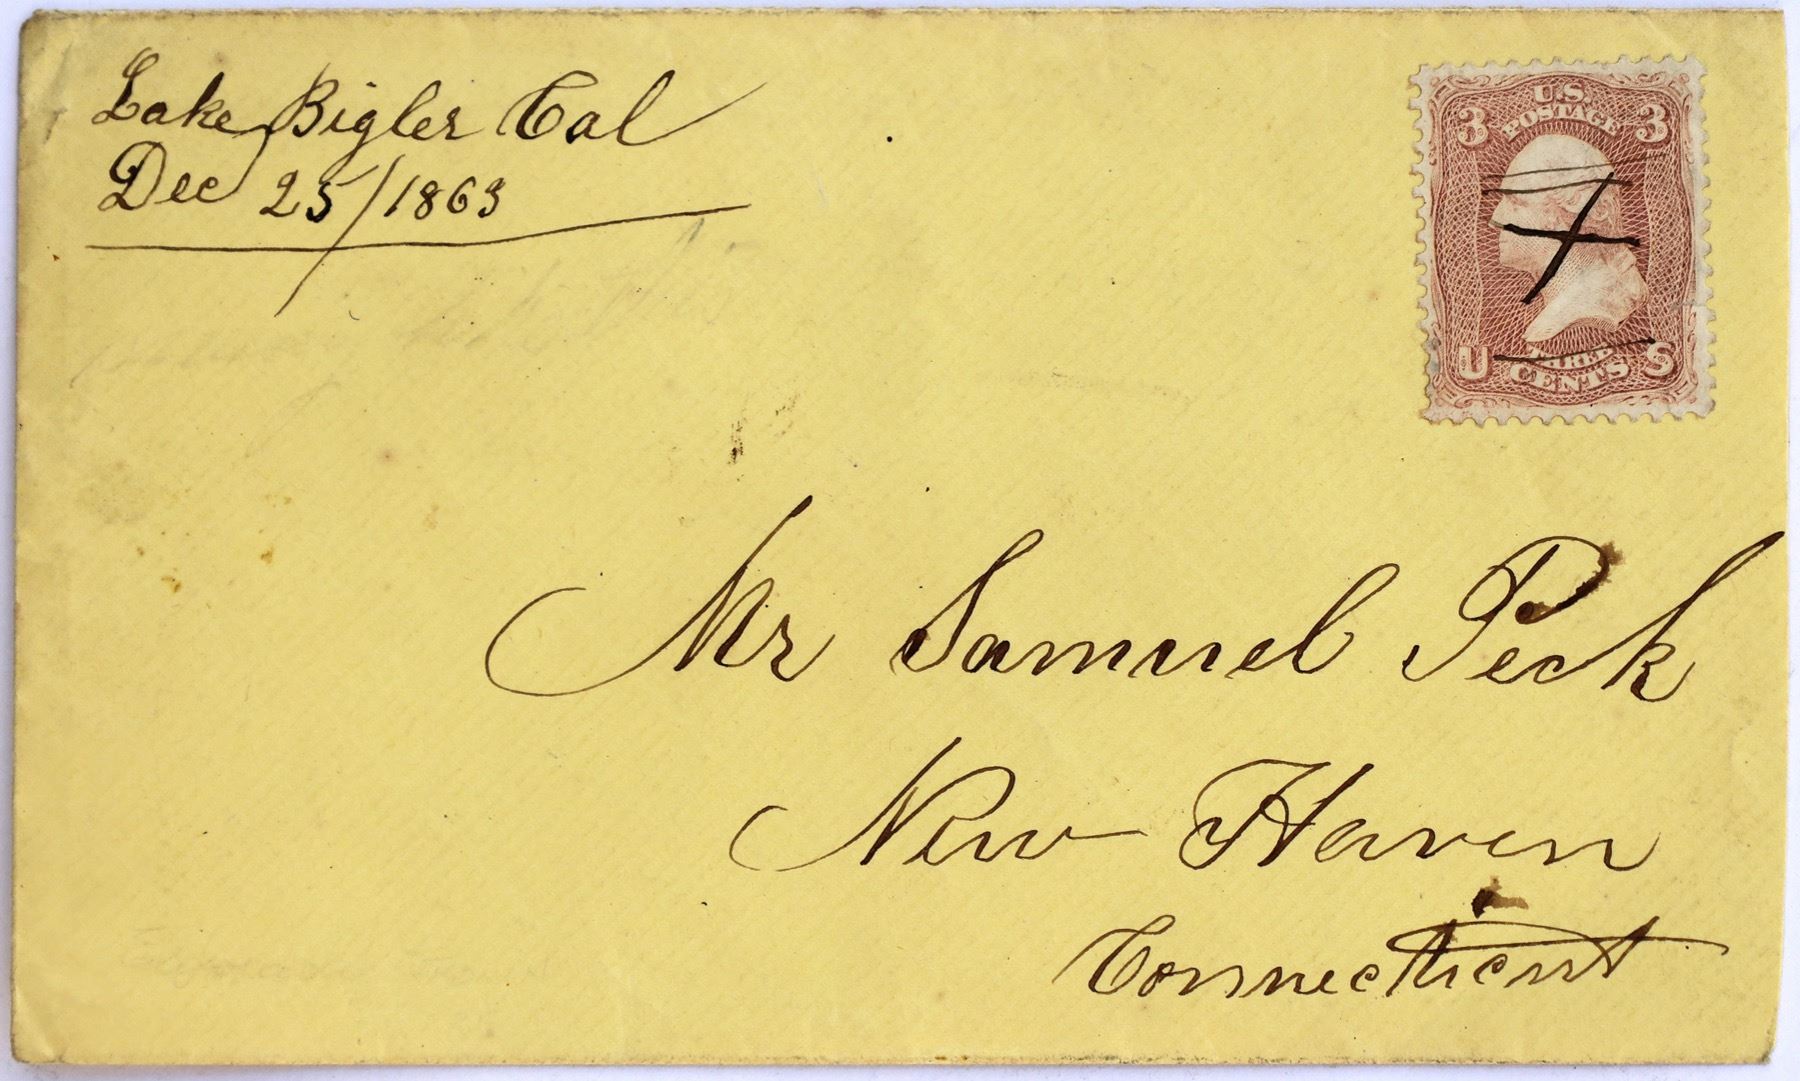 Lake Bigler Cal
Dec 25/1863
U.S.
POSTAGE
3 3
U S
THREE
CENTS
Mr Samuel Peck
New Haven
Connecticut